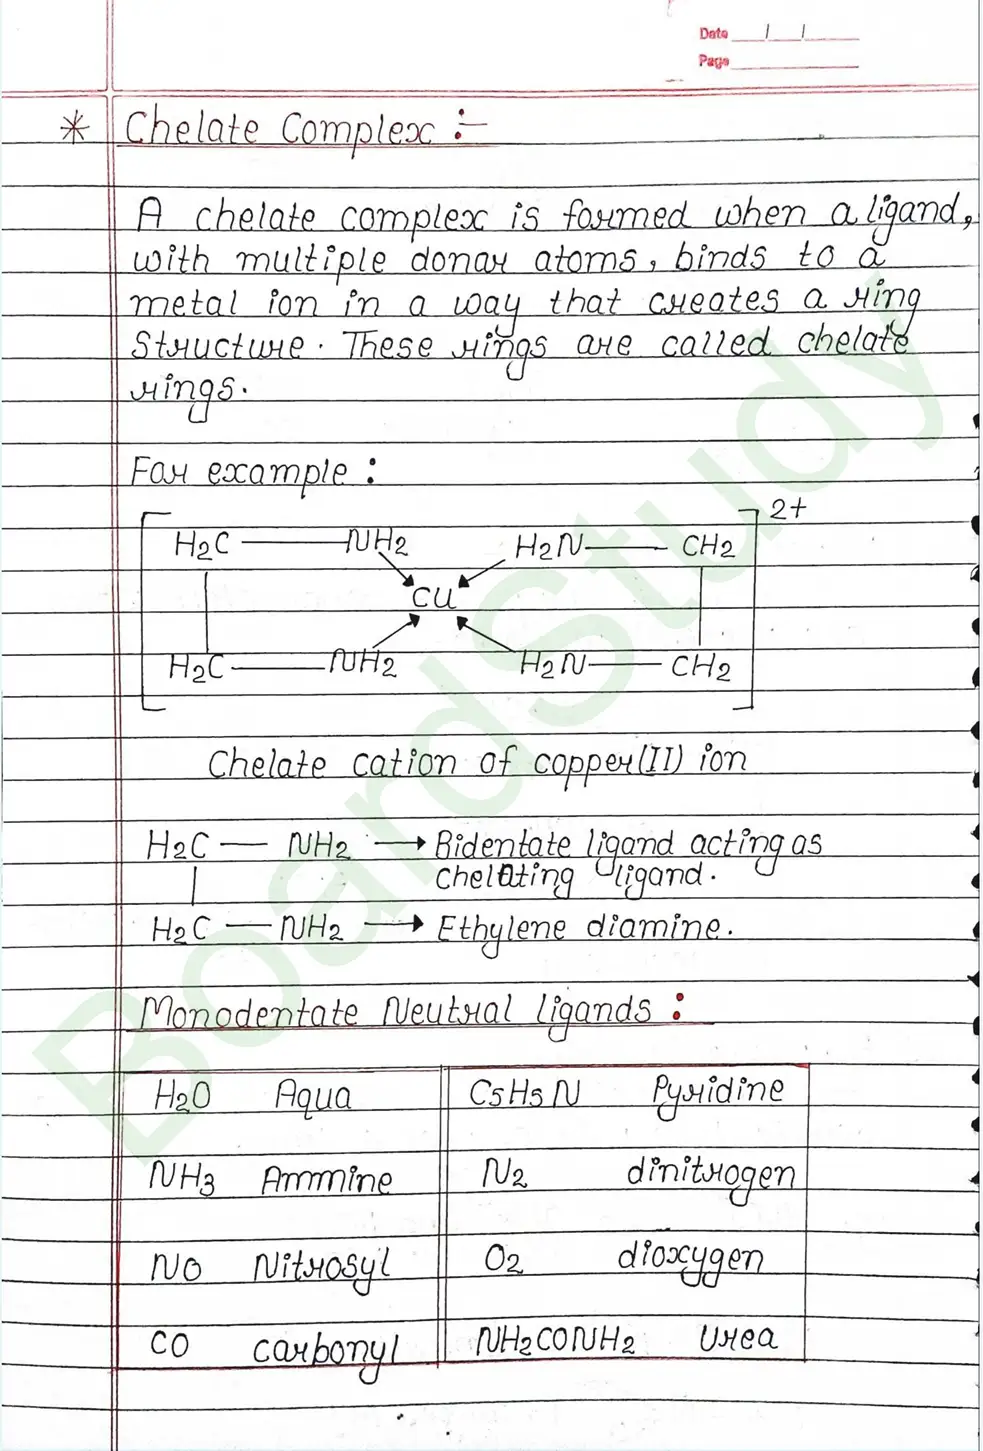 Date __/__/__
Page
* Chelate Complex :-
A chelate complex is formed when a ligand,
with multiple donar atoms, binds to a
metal ion in a way that creates a ring
Structure. These rings are called chelate
rings.
For example :
2+
H2C NH2 H2N CH2
Cu
H2C NH2 H2N CH2
Chelate cation of copper(II) ion
H2C — NH2 → Bidentate ligand acting as
chelating ligand.
H2C — NH2 → Ethylene diamine.
Monodentate Neutral ligands :
H2O Aqua C5H5N Pyridine
NH3 Ammine N2 dinitrogen
NO Nitrosyl O2 dioxygen
CO carbonyl NH2CONH2 Urea
BoardStudy